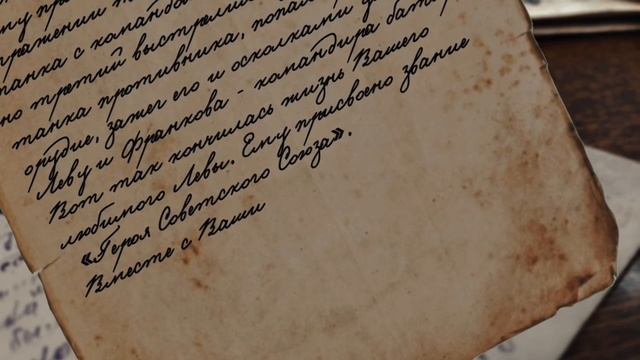 му пр
тражении т
танка с команд
но третий выстрелил
танка противника, попал
орудие, зажег его и осколками у
Леву и Франкова - командира бат
Вот так кончилась жизнь Вашего
любимого Левы. Ему присвоено звание
«Героя Советского Союза».
Вместе с Ваши